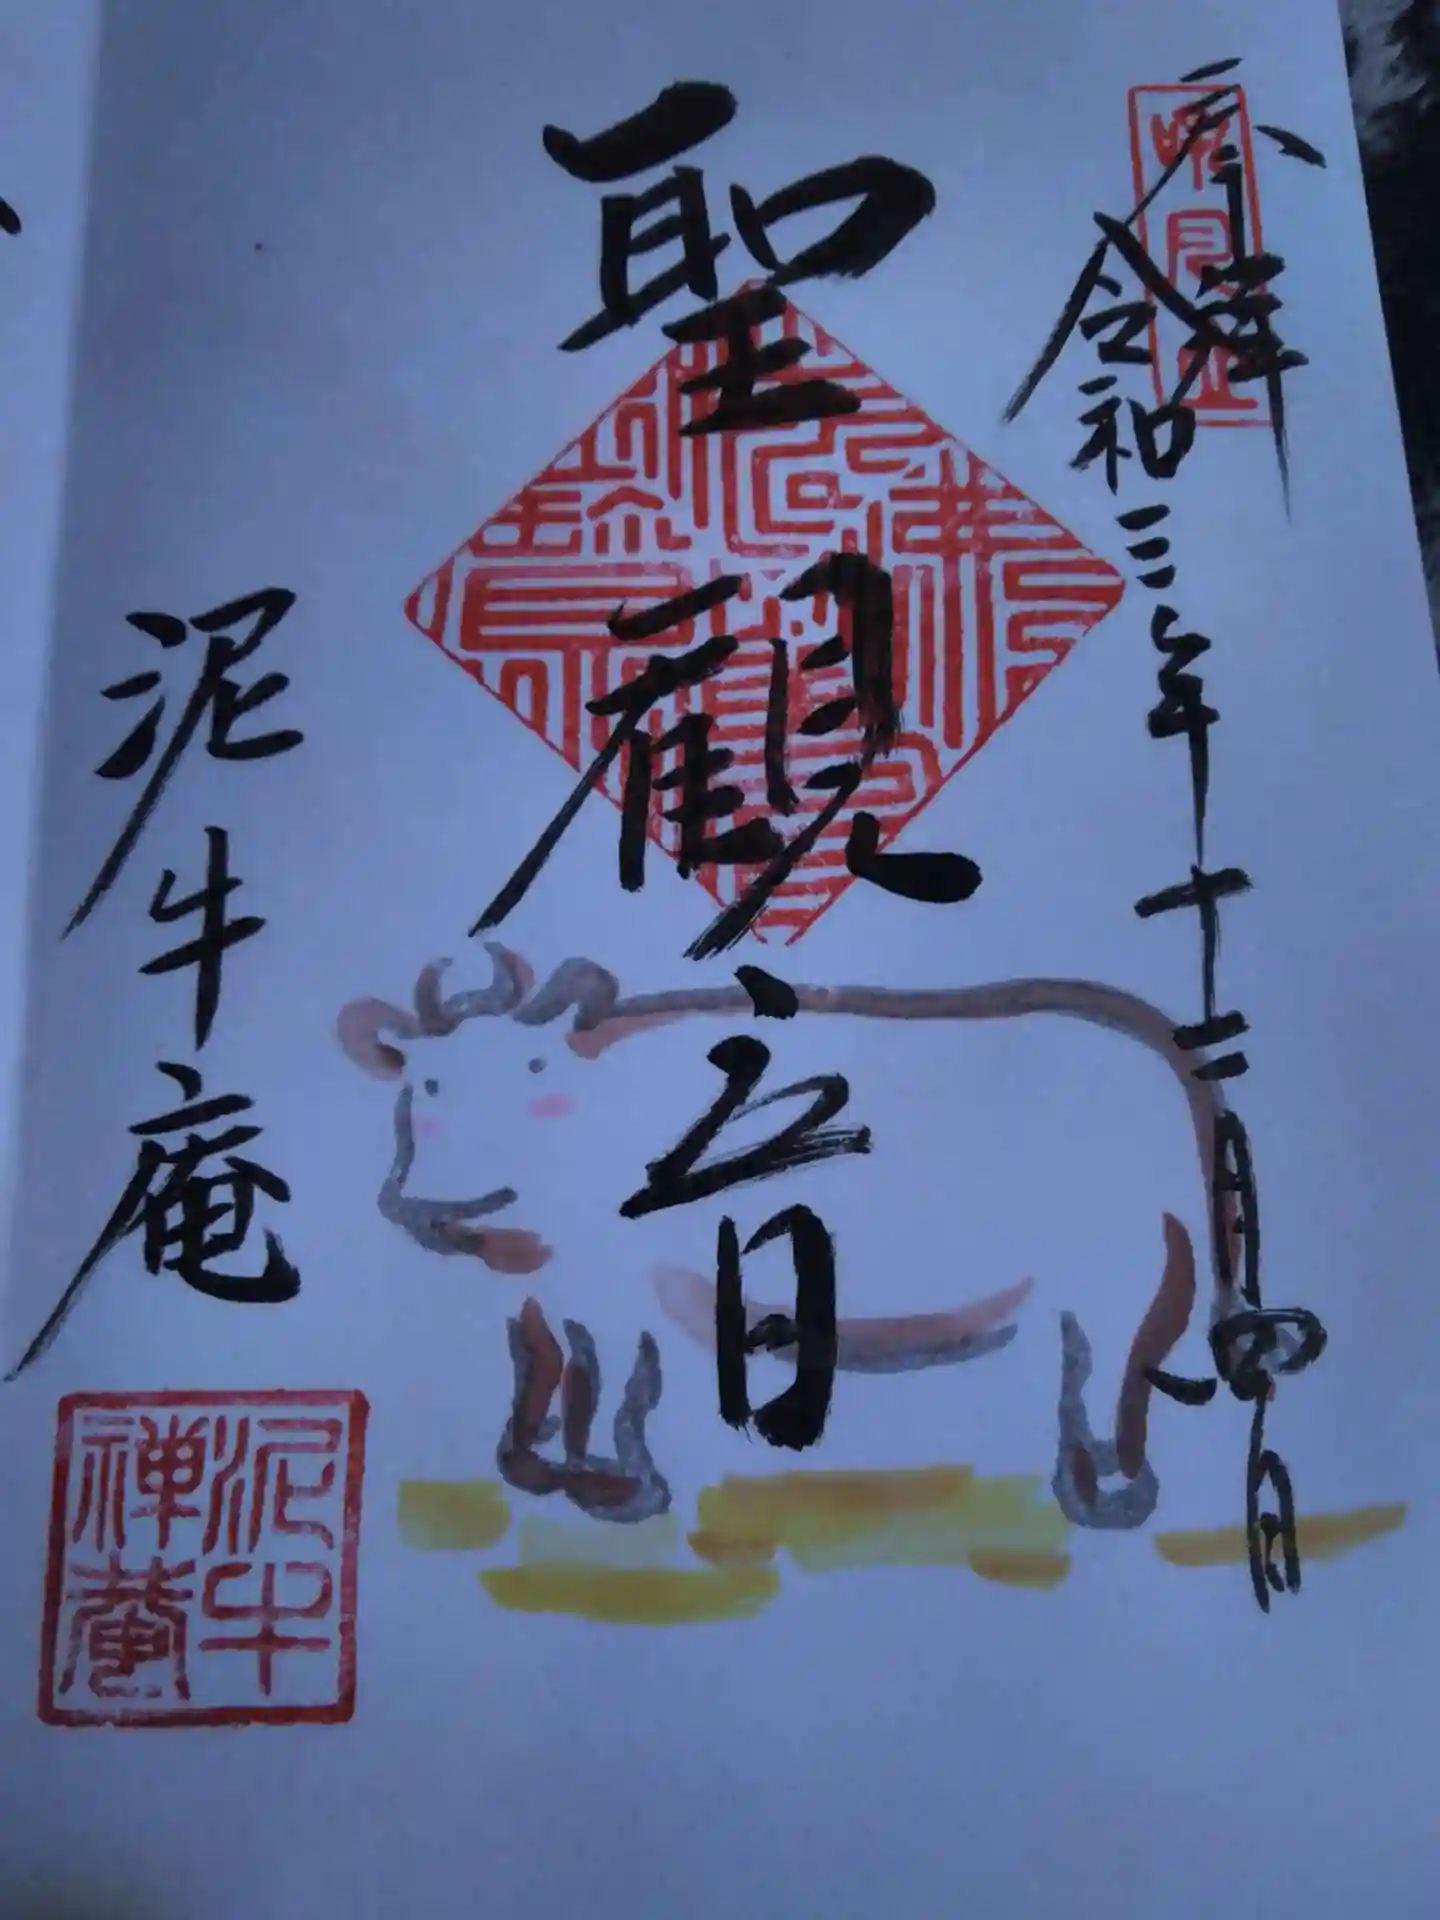 奉拝
令和三年十二月四日
聖観音
泥牛庵
泥牛
禅菴